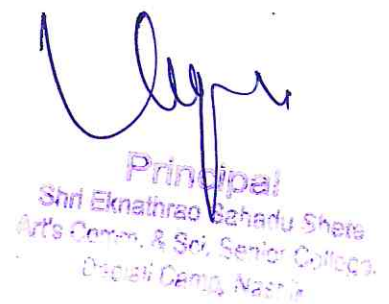 Principal
Shri Eknathrao Sahadu Shete
Art's Comm. & Sci. Senior College
Deolali Camp, Nashik